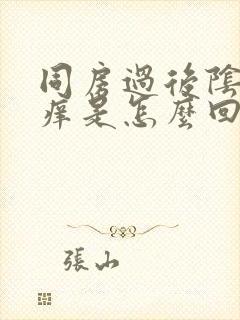 同房過後陰
痒是怎麼回
張山